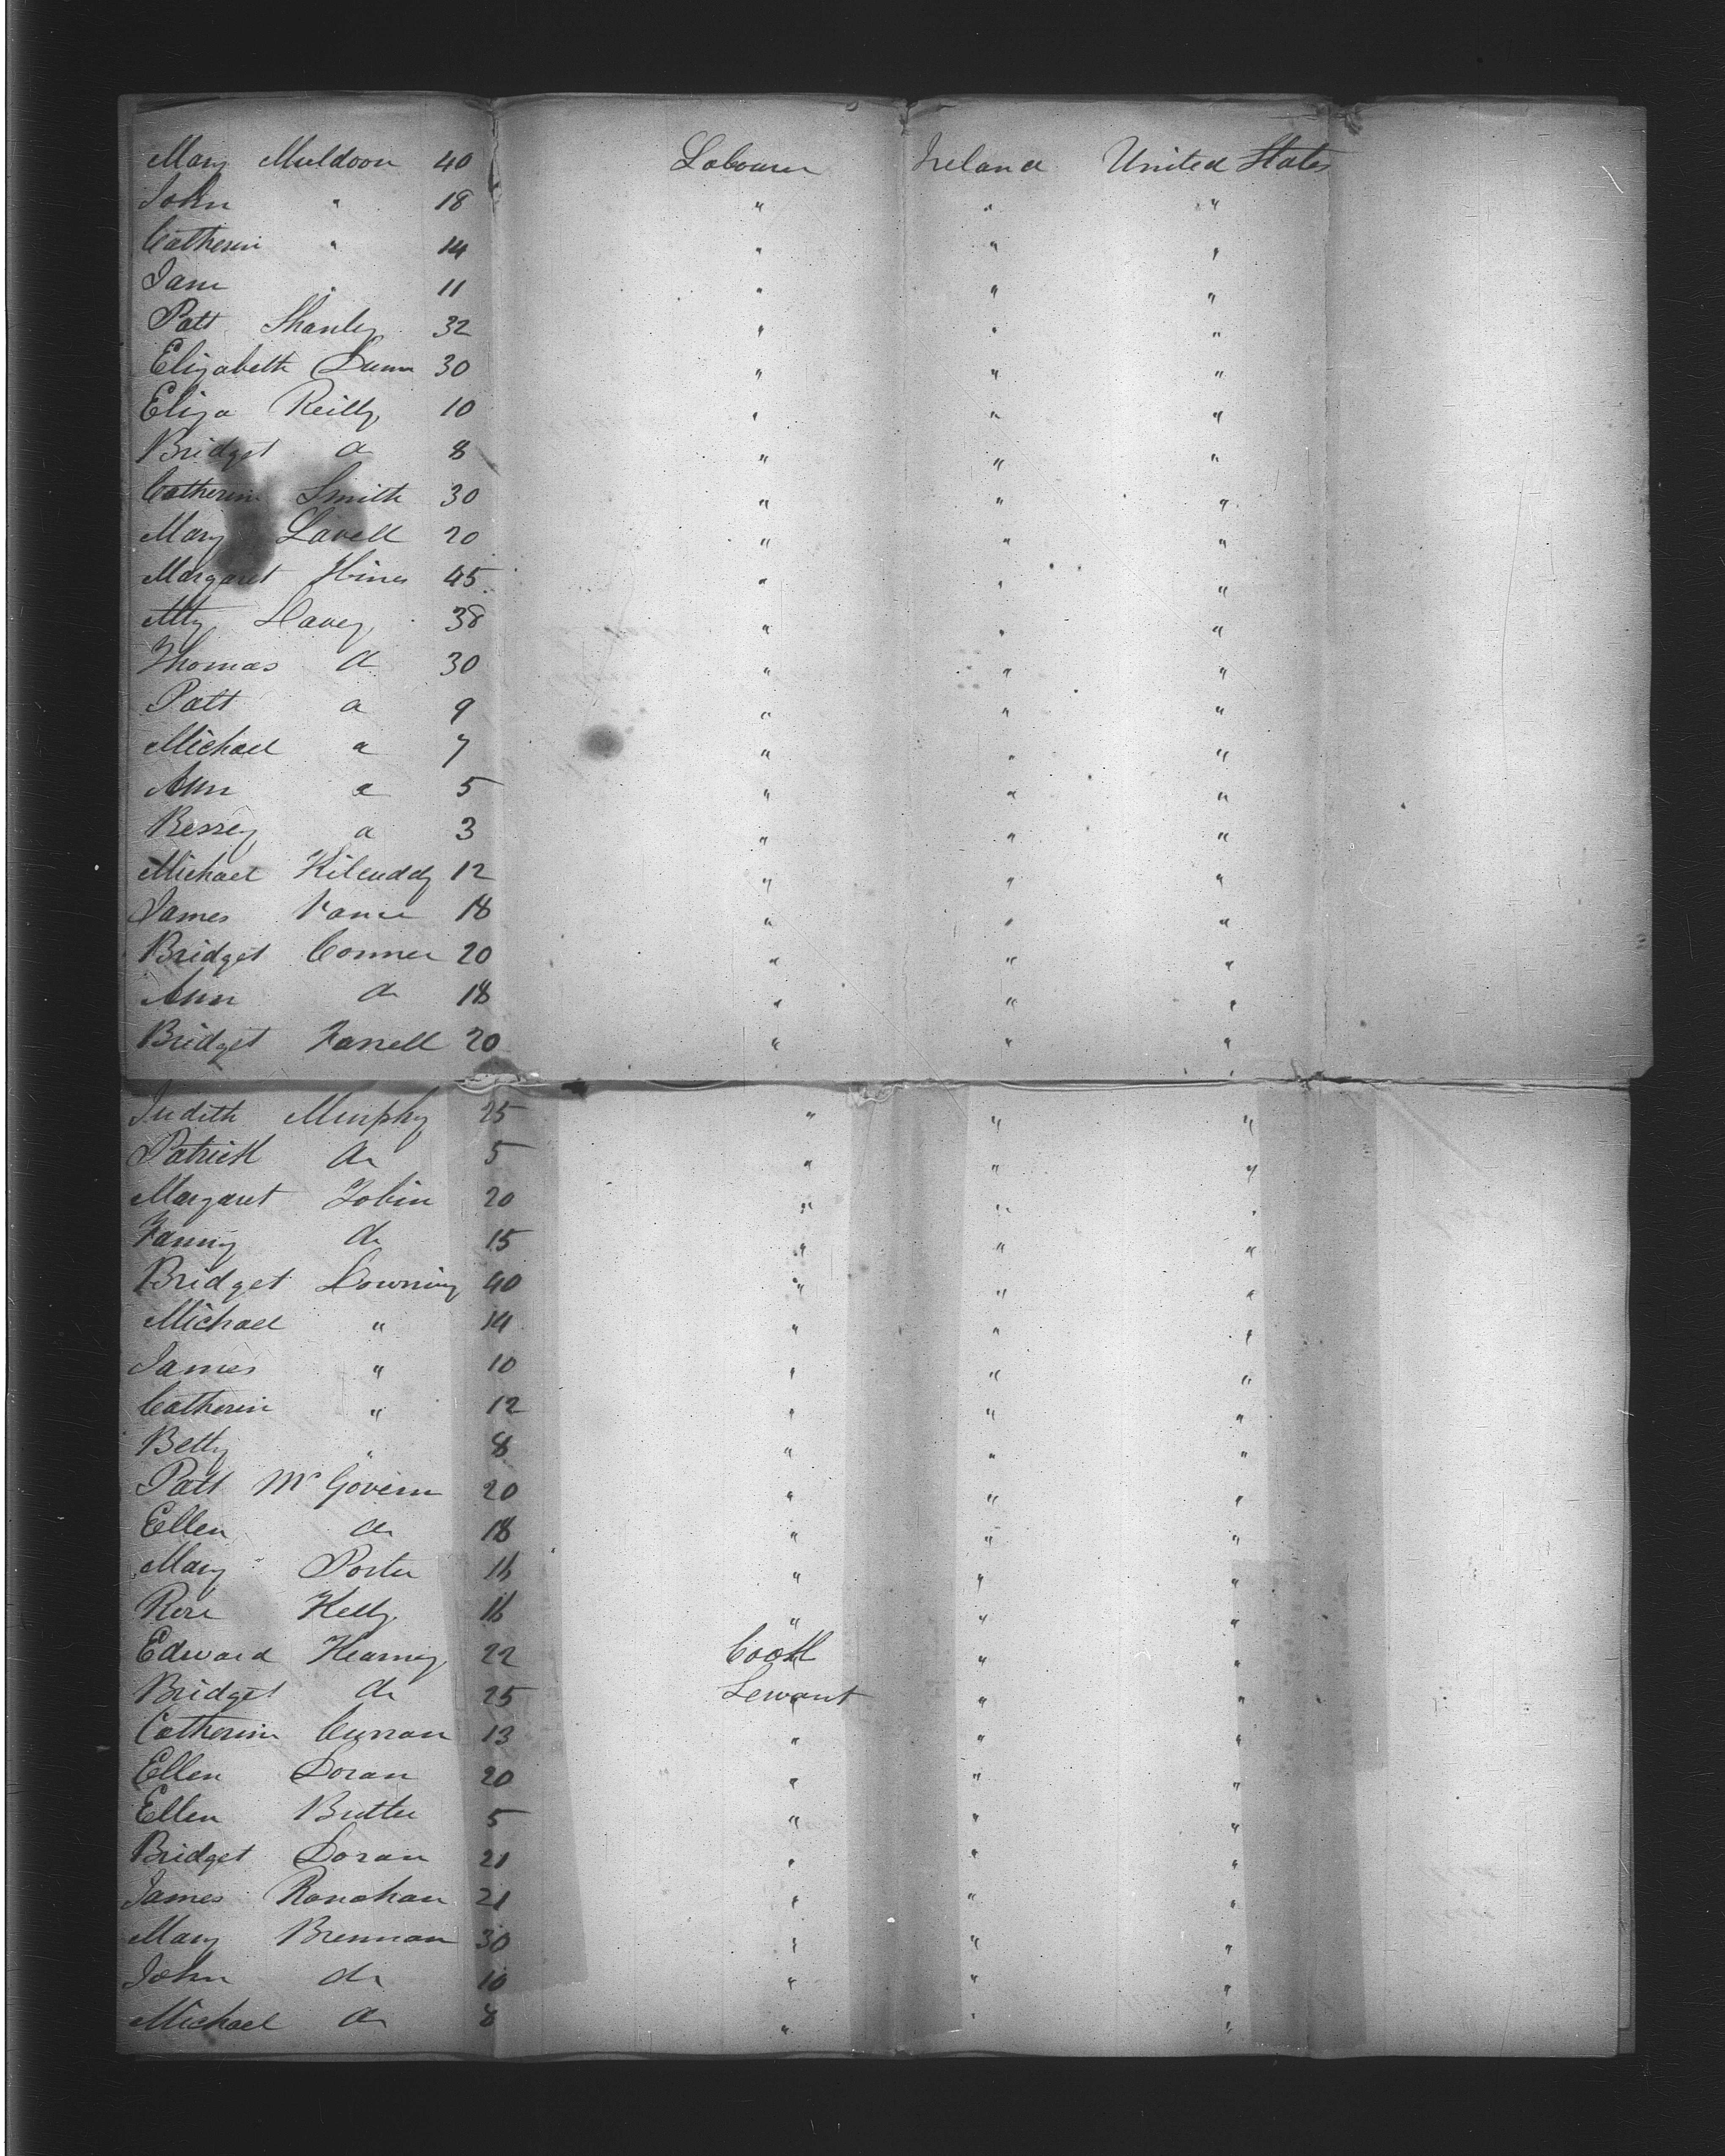 Mary Muldoon 40 Labourer Ireland United States
John " 18 " " "
Catherin " 14 " " "
Jane " 11 " " "
Patt Shanley 32 " " "
Elizabeth Dunn 30 " " "
Eliza Reilly 10 " " "
Bridget do 8 " " "
Catherine Smith 30 " " "
Mary Lavell 20 " " "
Margaret Hines 45 " " "
Davey 38 " " "
Thomas do 30 " " "
Patt do 9 " " "
Michael do 7 " " "
Ann do 5 " " "
Bessey do 3 " " "
Michael Kilcuddy 12 " " "
James Vance 18 " " "
Bridget Conner 20 " " "
Ann do 18 " " "
Bridget Farrell 20 " " "
Judith Murphy 25 " " "
Patrick do 5 " " "
Margaret Tobin 20 " " "
Fanny do 15 " " "
Bridget Downing 40 " " "
Michael " 14 " " "
James " 10 " " "
Catherin " 12 " " "
Betty " 8 " " "
Patt McGovern 20 " " "
Ellen do 18 " " "
Mary Porter 16 " " "
Rose Kelly 16 " " "
Edward Kearney 22 Cook " "
Bridget do 25 Servant " "
Catherine Curran 13 " " "
Ellen Doran 20 " " "
Ellen Butler 5 " " "
Bridget Doran 21 " " "
James Ranahan 21 " " "
Mary Brennan 30 " " "
John do 10 " " "
Michael do 8 " " "